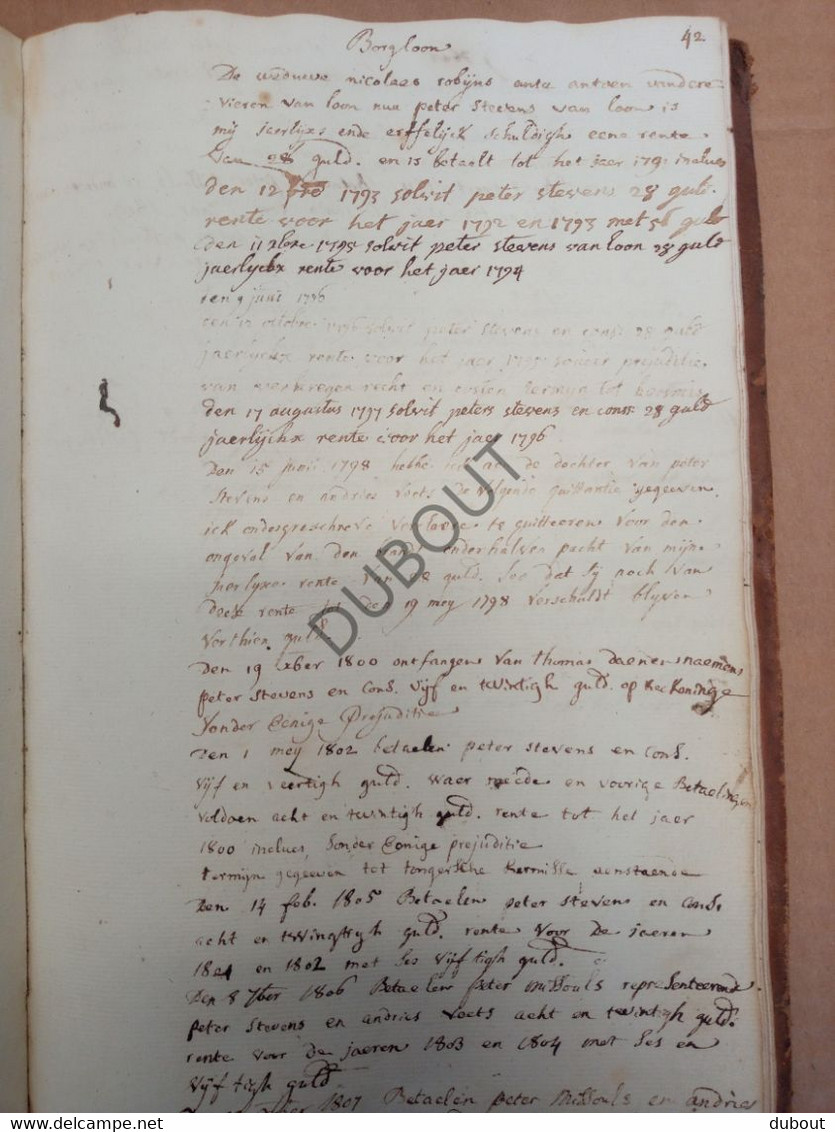 42
Borgloon
De weduwe nicolaes robijns ante antoen vandere
vieren van loon nun peter Stevens van loon is
mij jaerlyxs ende erffelijck schuldigh eene rente
van 28 guld. en is betaelt tot het jaer 1791 inclus
den 12 1793 solvit peter stevens 28 guld.
rente voor het jaer 1792 en 1793 met 56 guld
den 11 xbre 1795 solvit peter stevens van loon 28 guld
jaerlyckx rente voor het jaer 1794
den 9 junii 1796
den 13 octobre 1796 solvit peter stevens en cons: 28 guld
jaerlyckx rente voor het jaer 1795 sonder prejuditie
van verkregen recht en costen termijn tot
den 17 augustus 1797 solvit peters stevens en cons: 28 guld
jaerlijckx rente voor het jaer 1796
Den 15 junii 1798 hebbe ick aen de dochter van peter
Stevens en andries Voets de volgende quittantie gegeeven
ick ondergeschreve verclaere te quitteeren voor den
ongeval van den brandt onderhalven pacht van mijne
jaerlyxe rente van 28 guld. soo dat sij noch van
dese rente tot den 19 mey 1798 verschuldt blyven
verthien guld.
Den 19 xber 1800 ontfangen van thomas daenen naemens
peter stevens en Cons. vijf en twintigh guld. op reekeninge
Sonder Eenige Prejuditie
Den 1 mey 1802 betaelen peter stevens en cons.
vijf en veertigh guld. waer meede en voorige Betaelingen
voldoen acht en twintigh guld. rente tot het jaer
1800 inclus, Sonder Eenige prejuditie
termijn gegeeven tot tongersche kermisse aenstaende
Den 14 feb. 1805 Betaelen peter stevens en Cons.
acht en twingtigh guld. rente voor De jaeren
1801 en 1802 met ses vijftigh guld.
Den 8 7ber 1806 Betaelen peter missouls representeerende
peter Stevens en andries Voets acht en twintigh guld.
rente voor De jaeren 1803 en 1804 met ses en
vijftigh guld
1807 Betaelen peter Missouls en andries
DUBOUT
delcampe.net
dubout